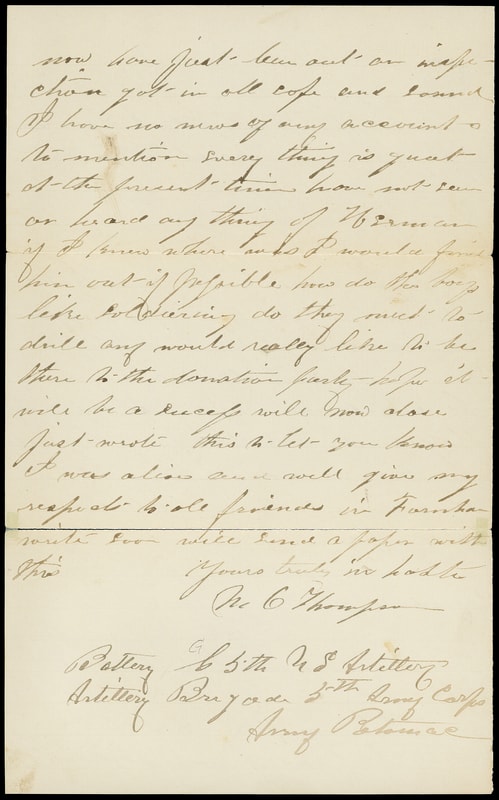 now have just been out on inspe-
ction got in all safe and sound
I have no news of any account
to mention every thing is quiet
at the present time have not seen
or heard any thing of Herman
if I knew where was I would find
him out if possible how do the boys
like soldiering do they must to
drill any would really like to be
there to the donation party hope it
will be a success will now close
just wrote this to let you know
I was alive and well give my
respects to all friends in Farnham
write soon will send a paper with
this Yours truly in haste
M C Thompson
Battery G 5th U S Artillery
Artillery Brigade 5th Army Corps
Army Potomac